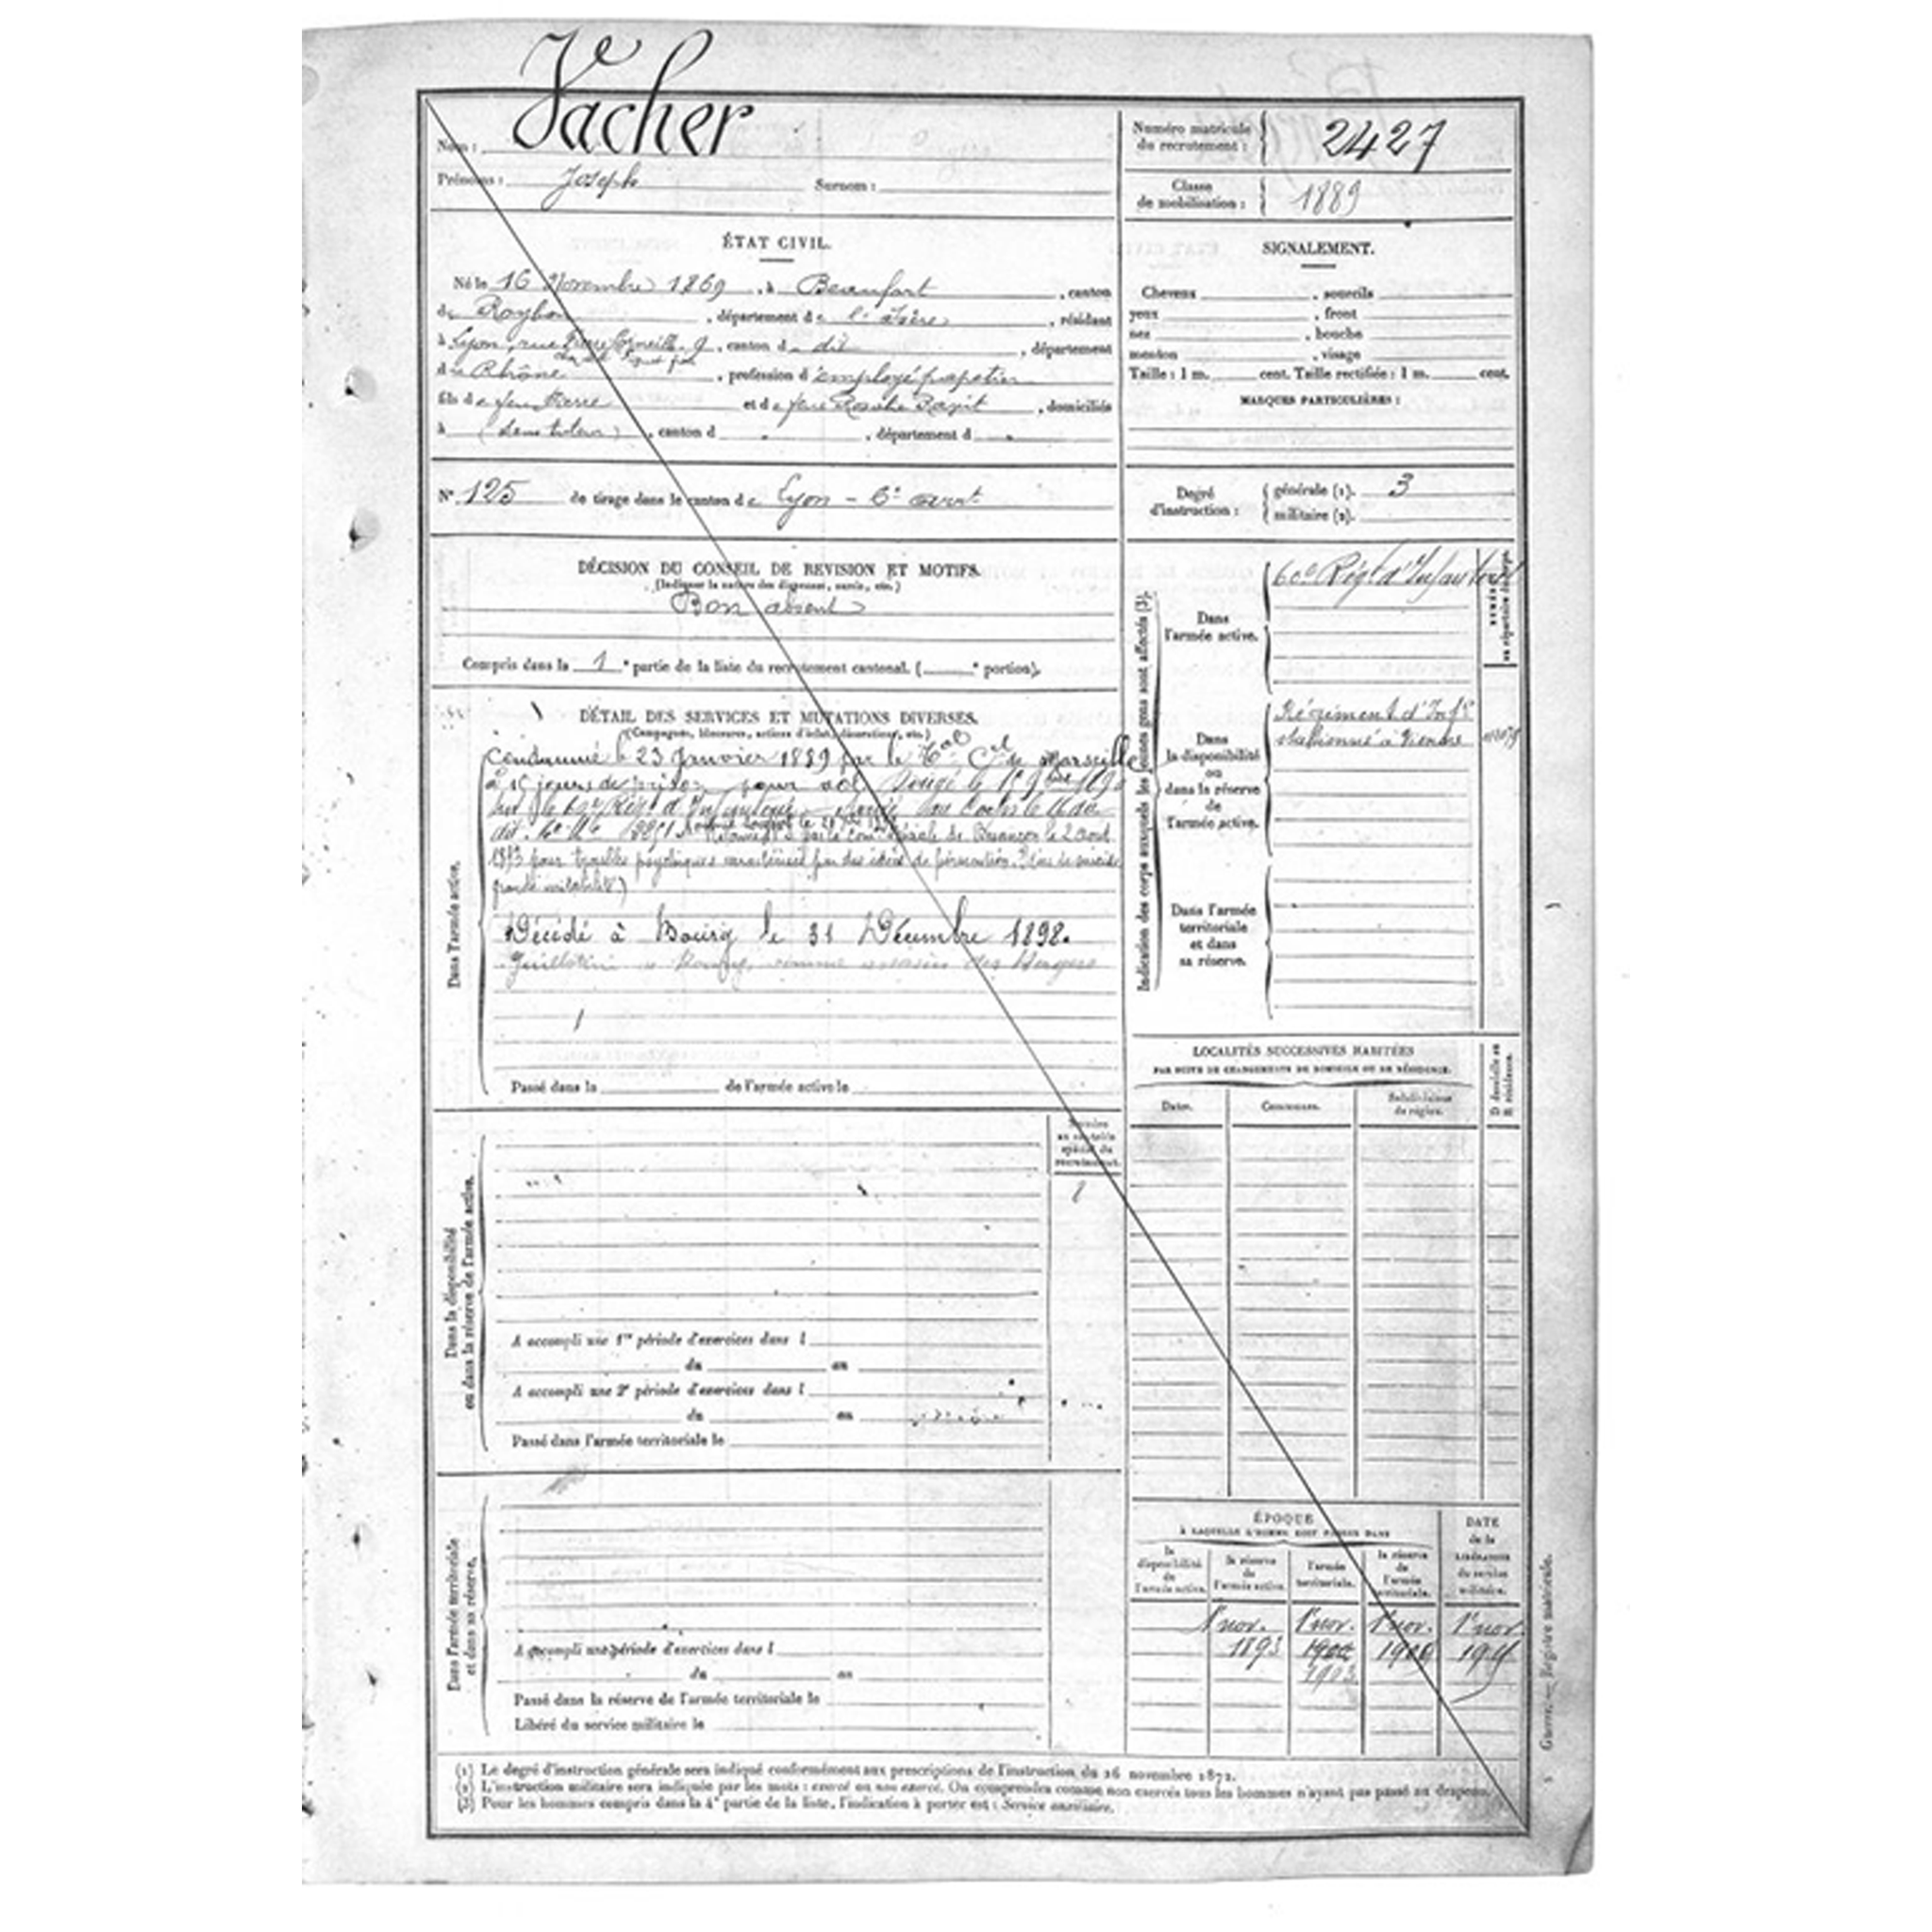 Vacher
Nom :
Prénoms : Joseph Surnom :
Numéro matricule du recrutement : 2427
Classe de mobilisation : 1889
ÉTAT CIVIL.
Né le 16 Novembre 1869, à Beaufort, canton
de Roybon, département de l'Isère, résidant
à Lyon, rue Pierre Corneille, 9, canton d dit, département
du Rhône, profession d'employé papetier
fils de feu Pierre et de feue Rosalie, domiciliés
à (sans tuteur), canton d , département d
SIGNALEMENT.
Cheveux , sourcils
yeux , front
nez , bouche
menton , visage
Taille : 1 m. cent. Taille rectifiée : 1 m. cent.
MARQUES PARTICULIÈRES :
N° 125 de tirage dans le canton de Lyon - 6e arrt
Degré d'instruction : générale (1). 3
militaire (2).
DÉCISION DU CONSEIL DE REVISION ET MOTIFS.
(Indiquer la nature des dispenses, sursis, etc.)
Bon absent
Compris dans la 1e partie de la liste du recrutement cantonal. ( e portion).
DÉTAIL DES SERVICES ET MUTATIONS DIVERSES.
(Campagnes, blessures, actions d'éclat, décorations, etc.)
Dans l'armée active.
Condamné le 23 Janvier 1889 par le Tal Cel de Marseille
à 15 jours de prison pour vol Dirigé le 15 9bre 1890
sur le 60e Régt d'Infanterie au Corps le
dit. Réformé par la Comon Spéciale de Besançon le 2 août
1893 pour troubles psychiques caractérisés par des idées de persécution, idées de suicide
grande irritabilité)
Décédé à Bourg le 31 Décembre 1898.
Guillotiné à Bourg, comme assassin des Bergers
Passé dans la de l'armée active le
Indication des corps auxquels les jeunes gens sont affectés (3).
Dans l'armée active.
60e Régt d'Infanterie
Dans la disponibilité ou dans la réserve de l'armée active.
Régiment d'Infie
stationné à Vienne
Dans l'armée territoriale et dans sa réserve.
NUMÉROS au répertoire du corps.
LOCALITÉS SUCCESSIVES HABITÉES
PAR SUITE DE CHANGEMENTS DE DOMICILE OU DE RÉSIDENCE.
Dates. Communes. Subdivisions de région. D domicile ou R résidence.
Dans la disponibilité ou dans la réserve de l'armée active.
Numéro au contrôle spécial du recrutement.
A accompli une 1re période d'exercices dans l
du au
A accompli une 2e période d'exercices dans l
du au
Passé dans l'armée territoriale le
Dans l'armée territoriale et dans sa réserve.
A accompli une période d'exercices dans l
du au
Passé dans la réserve de l'armée territoriale le
Libéré du service militaire le
ÉPOQUE
À LAQUELLE L'HOMME DOIT PASSER DANS
DATE de la LIBÉRATION du service militaire.
la disponibilité de l'armée active.
la réserve de l'armée active.
l'armée territoriale.
la réserve de l'armée territoriale.
1er nov. 1er nov. 1er nov. 1er nov.
1893 1900 1909
1903
(1) Le degré d'instruction générale sera indiqué conformément aux prescriptions de l'instruction du 26 novembre 1872.
(2) L'instruction militaire sera indiquée par les mots : exercé ou non exercé. On comprendra comme non exercés tous les hommes n'ayant pas passé au drapeau.
(3) Pour les hommes compris dans la 4e partie de la liste, l'indication à porter est : Service auxiliaire.
Guerre. — Registre matricule.